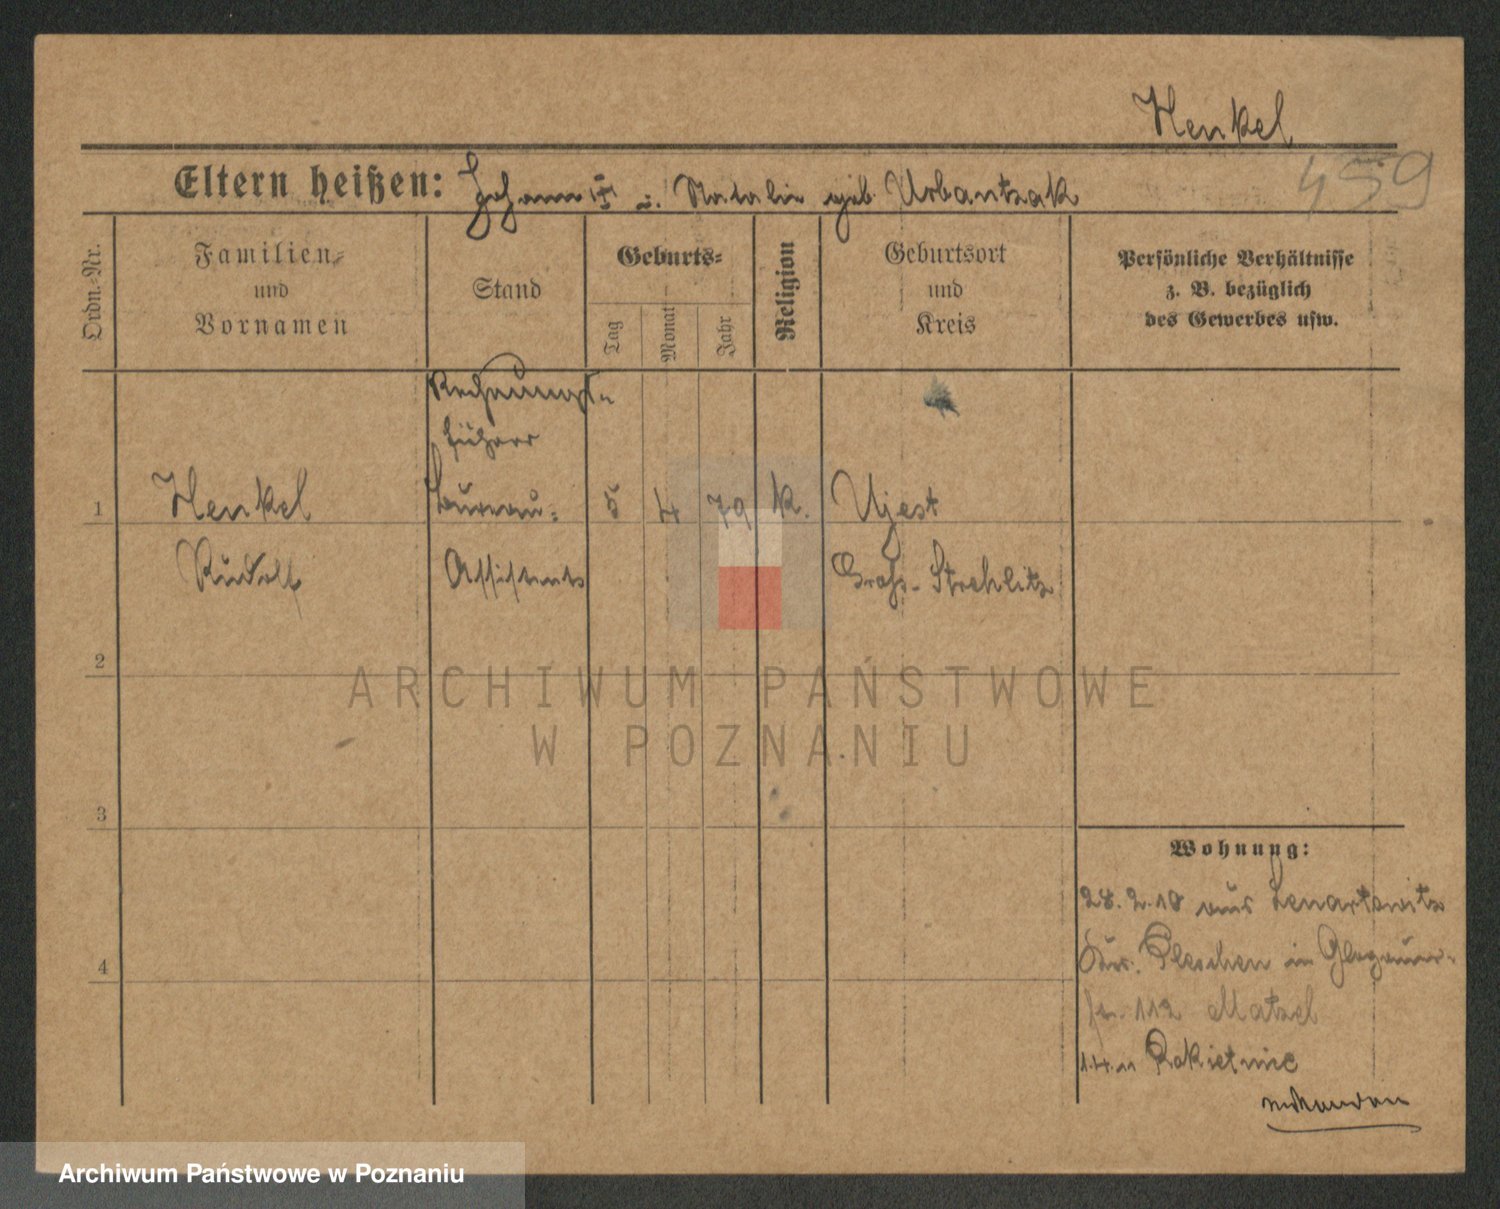 Henkel
459
Eltern heißen: Johann † u. Natalie geb. Urbantzak
Ordn.-Nr.
Familien-
und
Vornamen
Stand
Geburts-
Tag
Monat
Jahr
Religion
Geburtsort
und
Kreis
Persönliche Verhältnisse
z. B. bezüglich
des Gewerbes usw.
Rechnungs-
führer
1
Henkel
Bureau-
5
4
79
k.
Ujest
Rudolf
Assistent
Groß-Strehlitz
2
3
4
Wohnung:
28.2.10 aus Lenartowitz
Pleschen in Glogauer-
112 Matzel
1.4.11 Rokietnice
ARCHIWUM PAŃSTWOWE
W POZNANIU
Archiwum Państwowe w Poznaniu